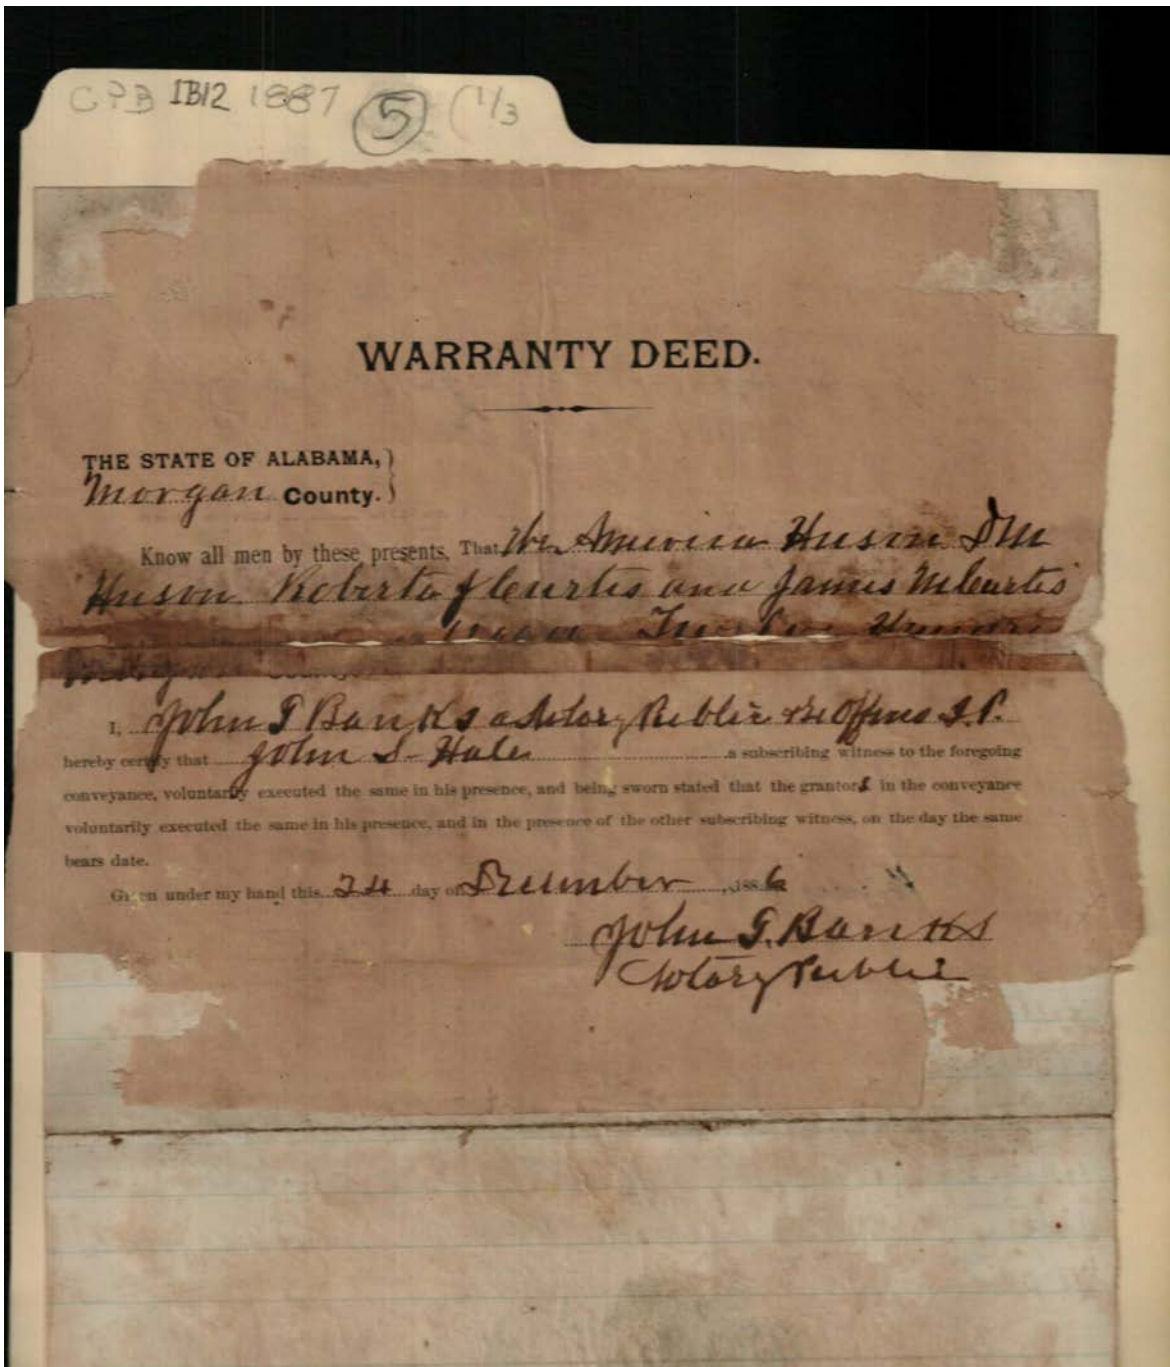 CPB IB12 1887 5 (1/3
WARRANTY DEED.
THE STATE OF ALABAMA,
Morgan County.
Know all men by these presents, That We America Huson D M
Huson Roberta J Curtis and James M Curtis
Hundred
I, John T Banks a Notary Public & Ex Officio J.P.
hereby certify that John S Hales a subscribing witness to the foregoing
conveyance, voluntarily executed the same in his presence, and being sworn stated that the grantors in the conveyance
voluntarily executed the same in his presence, and in the presence of the other subscribing witness, on the day the same
bears date.
Given under my hand this 24 day of December, 1886
John T. Banks
Notary Public